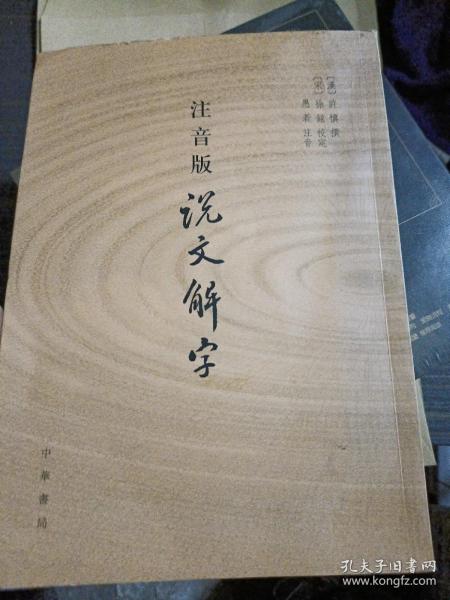 [漢]許慎撰
[宋]徐鉉校定
愚若注音
注音版
说文解字
中華書局
孔夫子旧书网
www.kongfz.com